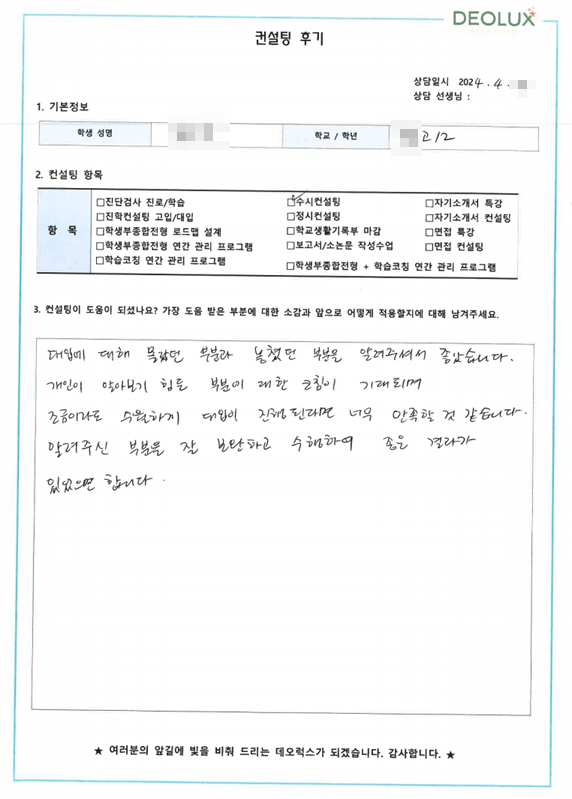 DEOLUX
컨설팅 후기
상담일시 2024. 4.
상담 선생님 :
1. 기본정보
학생 성명 학교 / 학년 고/2
2. 컨설팅 항목
항 목
□진단검사 진로/학습 □수시컨설팅 □자기소개서 특강
□진학컨설팅 고입/대입 □정시컨설팅 □자기소개서 컨설팅
□학생부종합전형 로드맵 설계 □학교생활기록부 마감 □면접 특강
□학생부종합전형 연간 관리 프로그램 □보고서/소논문 작성수업 □면접 컨설팅
□학습코칭 연간 관리 프로그램 □학생부종합전형 + 학습코칭 연간 관리 프로그램
3. 컨설팅이 도움이 되셨나요? 가장 도움 받은 부분에 대한 소감과 앞으로 어떻게 적용할지에 대해 남겨주세요.
대입에 대해 몰랐던 부분과 놓쳤던 부분을 알려주셔서 좋았습니다.
개인이 알아보기 힘든 부분에 대한 코칭이 기대되며
조금이라도 수월하게 대입이 진행된다면 너무 만족할 것 같습니다.
알려주신 부분을 잘 보완하고 수행하여 좋은 결과가
있었으면 합니다.
★ 여러분의 앞길에 빛을 비춰 드리는 데오럭스가 되겠습니다. 감사합니다. ★